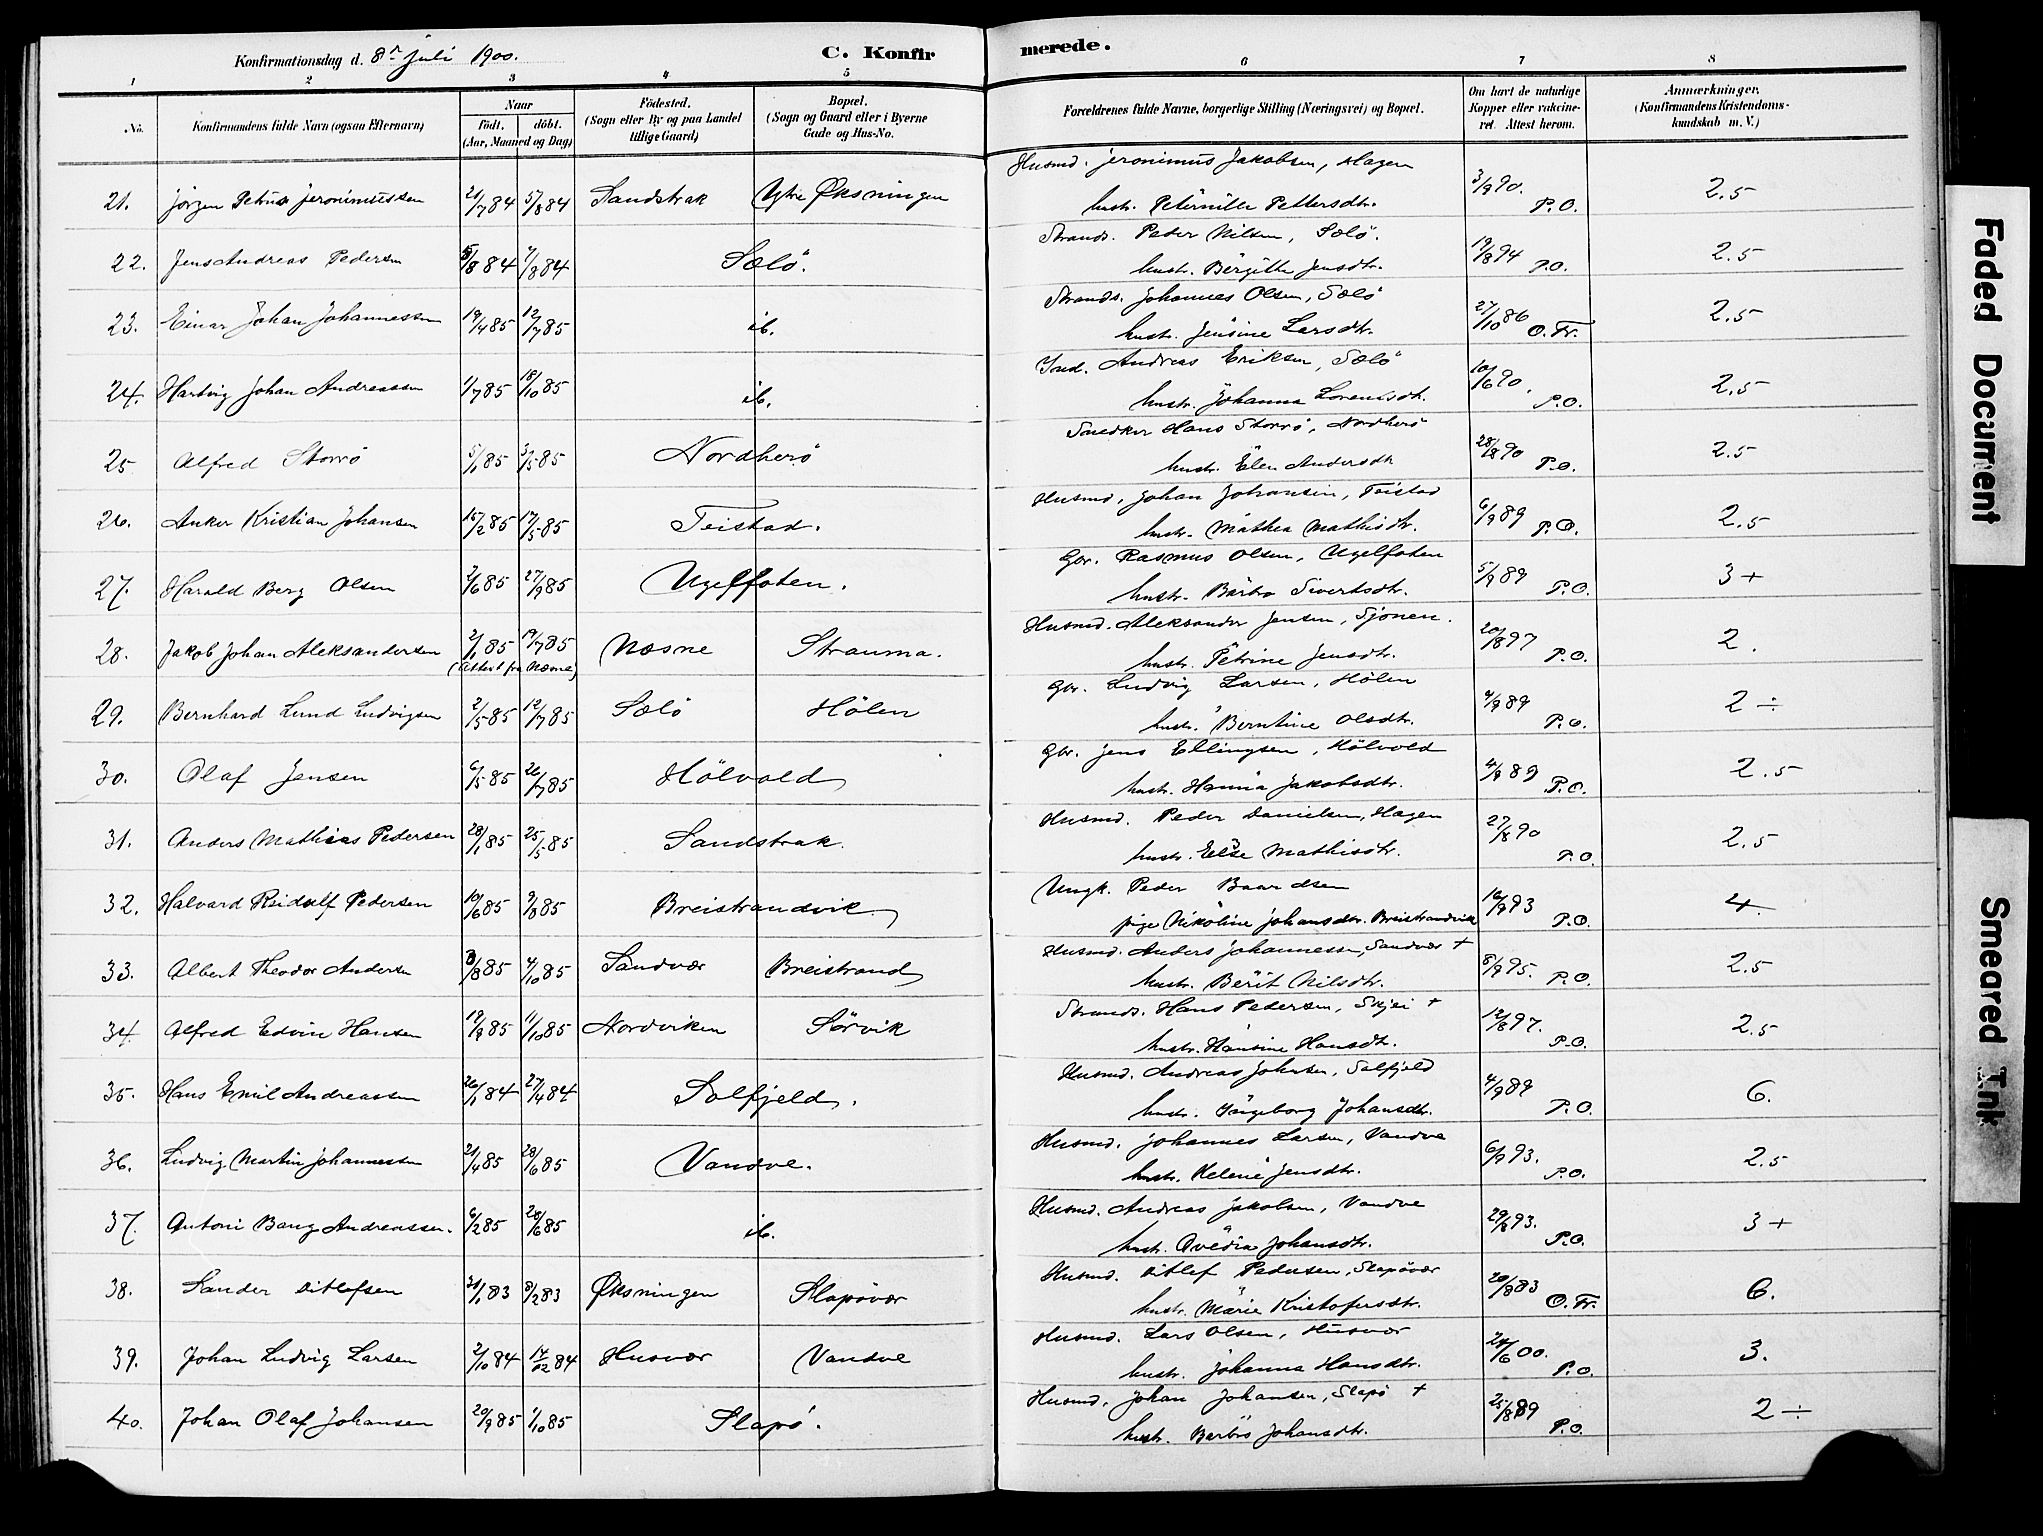 Konfirmationsdag d. 8de juli 1900.
C. Konfirmerede.
1 2 3 4 5 6 7 8
No.
Konfirmandens fulde Navn (ogsaa Efternavn)
Naar
Födt. döbt.
(Aar, Maaned og Dag)
Födested.
(Sogn eller By og paa Landet tillige Gaard)
Bopæl.
(Sogn og Gaard eller i Byerne Gade og Hus-No.
Forældrenes fulde Navne, borgerlige Stilling (Næringsvei) og Bopæl.
Om havt de naturlige Kopper eller vakcineret. Attest herom.
Anmærkninger.
(Konfirmandens Kristendomskundskab m. V.)
21. Jørgen Petrus Jeronimussen 21/7 84 5/8 84 Sandstrak Ytre Øksningen Husmd. Jeronimus Jakobsen, Hagen
hustr. Peternille Pettersdtr. 3/9 90. P.O. 2.5
22. Jens Andreas Pedersen 5/8 84 7/8 84 Sælö. Strands. Peder Nilsen, Sælö.
hustr. Bergitte Jensdtr. 19/8 94 P.O. 2.5
23. Einar Johan Johannessen 19/4 85 12/7 85 ib. Strands. Johannes Olsen, Sælö
hustr. Jensine Larsdtr. 27/10 86 O.Fr. 2.5
24. Hartvig Johan Andreassen 1/7 85 18/10 85 ib. Ind. Andreas Eriksen, Sælö
hustr. Johanna Lorensdtr. 10/6 90. P.O. 2.5
25 Alfred Storrö 5/1 85 3/5 85 Nordherö Snedker Hans Storrö, Nordherö
hustr. Elen Andersdtr 28/8 90 P.O. 2.5
26. Anker Kristian Johansen 15/2 85 17/5 85 Teistad. Husmd. Johan Johansen, Teistad
hustr. Mathea Mathisdtr. 6/9 89 P.O. 2.5
27. Harald Berg Olsen 2/6 85 27/9 85 Ugelfoten. Gbr. Rasmus Olsen, Ugelfoten
hustr. Barbro Sivertsdtr. 5/9 89 P.O. 3+
28. Jakob Johan Aleksandersen 2/1 85 19/7 85 Næsne Strauma. Husmd. Aleksander Jensen, Sjonen.
(Attest fra Næsne) hustr. Petrine Jensdtr. 20/8 97 P.O. 2.
29. Bernhard Lund Ludvigsen 2/5 85 12/7 85 Sælö Hölen Gbr. Ludvig Larsen, Hölen
hustr. Berntine Olsdtr. 4/9 89 P.O. 2 ÷
30. Olaf Jensen 6/5 85 26/7 85 Hölvold Gbr. Jens Ellingsen, Hölvold
hustr. Hanna Jakobsdtr. 4/9 89 P.O. 2.5
31. Anders Mathias Pedersen 28/1 85 25/5 85 Sandstrak. Husmd. Peder Danielsen, Hagen
hustr. Else Mathisdtr. 27/8 90 P.O. 2.5
32. Halvard Reidulf Pedersen 10/6 85 9/8 85 Breistrandvik. Ungk. Peder Baardsen
pige Nikoline Johansdtr. Breistrandvik 16/9 93 P.O. 4.
33. Albert Theodor Andersen 3/8 85 4/10 85 Sandvær Breistrand Husmd. Anders Johannessen, Sandvær +
hustr. Berit Nilsdtr. 8/9 95. P.O. 2.5
34. Alfred Edvin Hansen 19/9 85 11/10 85 Nordviken Sörvik Strands. Hans Pedersen, Skjei +
hustr. Hansine Hansdtr. 12/8 97. P.O. 2.5
35. Hans Emil Andreassen 26/1 84 27/4 84 Solfjeld. Husmd. Andreas Johnsen, Solfjeld
hustr. Ingeborg Johansdtr. 4/9 89 P.O. 6.
36. Ludvig Martin Johannessen 21/4 85 28/6 85 Vandve. Husmd. Johannes Larsen, Vandve
hustr. Helene Jensdtr. 6/9 93. P.O. 2.5
37. Antoni Bang Andreassen. 6/2 85 28/6 85 ib. Husmd. Andreas Jakobsen, Vandve
hustr. Ovedia Johansdtr. 29/8 93. P.O. 3+
38. Sander Ditlefsen 31/1 83 8/2 83 Øksningen Slapövær Husmd. Ditlef Pedersen, Slapövær
hustr. Marie Kristofersdtr. 20/8 83 O.Fr. 6.
39. Johan Ludvig Larsen 2/10 84 14/12 84 Husvær Vandve Husmd. Lars Olsen, Husvær
hustr. Johanna Hansdtr. 24/6 00. P.O. 3.
40. Johan Olaf Johansen 20/9 85 1/10 85 Slapö. Husmd. Johan Johansen, Slapö +
hustr. Barbro Johansdtr. 25/8 89 P.O. 2 ÷
Faded Document
Smeared Ink